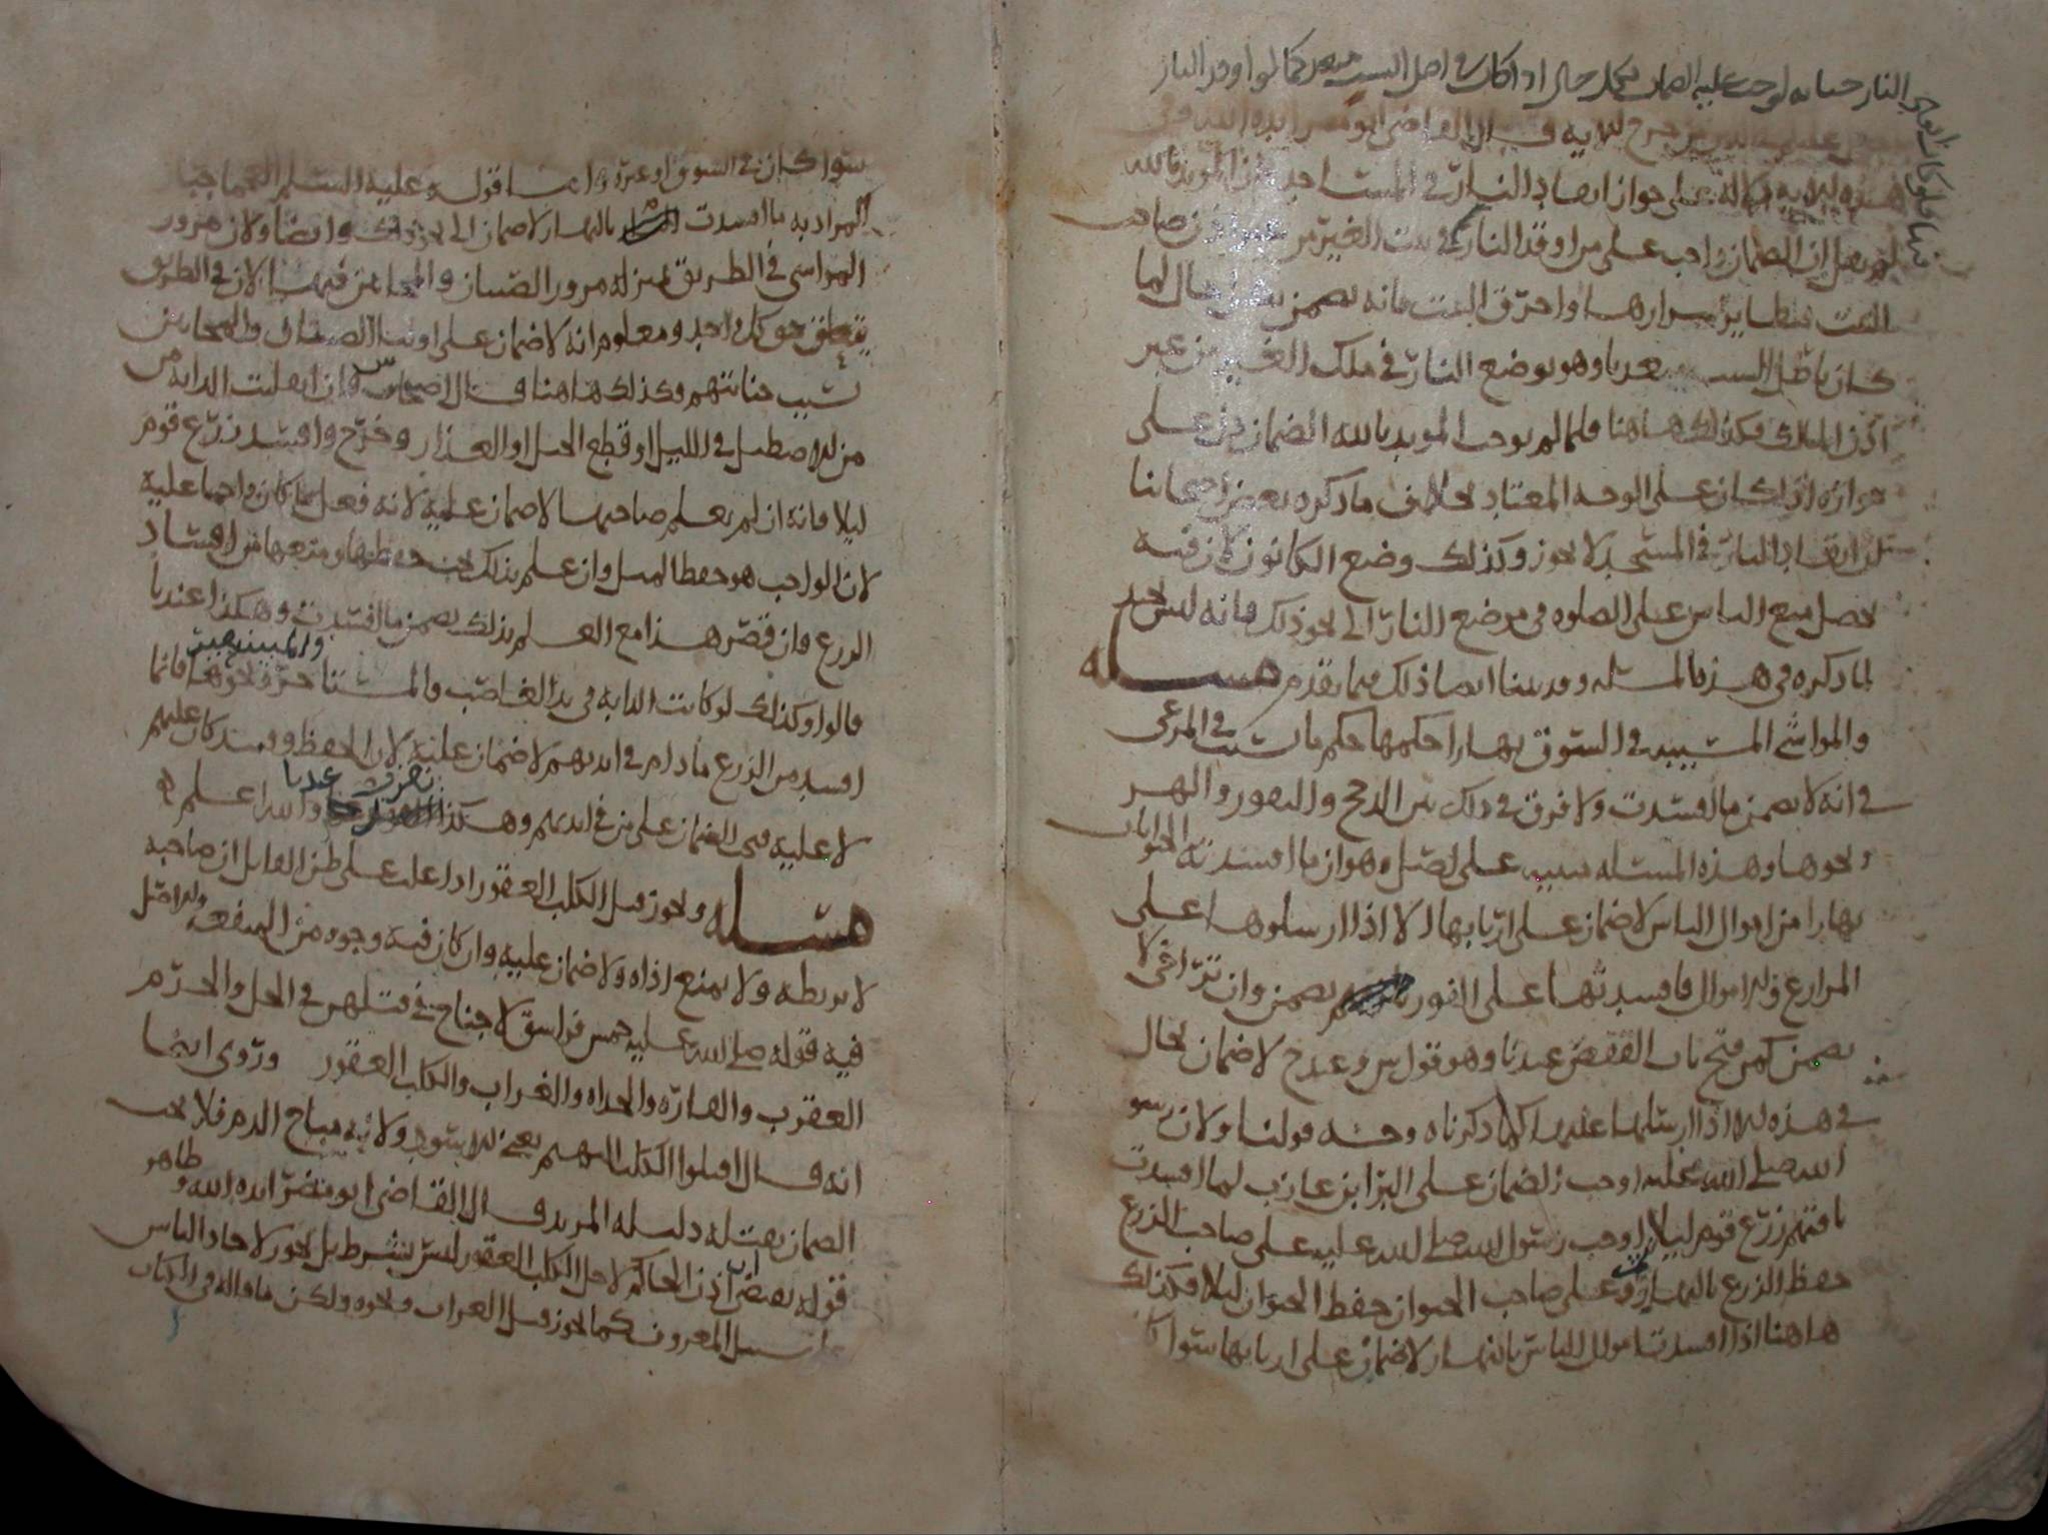 النار جناية لوجب عليه الضمان بكل حال اذا كان في اصل السبب متعديا كما لو اوقد النار
قال القاضي ابو مضر ايده الله في
هذه دلالة على جواز ايقاد النار في المساجد لان المويد بالله
لم يقل ان الضمان واجب على من اوقد النار في بيت الغير من غير اذن صاحب
البيت فتطاير شرارها واحترق البيت فانه يضمن بكل حال لما
كان باطل السبب متعديا وهو بوضع النار في ملك الغير من غير
اذن المالك فكذلك هاهنا فلما لم يوجب المويد بالله الضمان دل على
جوازه اذا كان على الوجه المعتاد بخلاف ما ذكره بعض اصحابنا
ان ايقاد النار في المسجد لا يجوز وكذلك وضع الكانون لان فيه
يحصل منع الناس على الصلوه في موضع النار الى نحو ذلك فانه ليس بحد
لما ذكره في هذه المسئله وقد بينا ايضا ذلك فيما تقدم مسئله
والمواشي المسيبه في السوق نهارا حكمها حكم ما سيب في المرعى
في انه لا يضمن ما افسدت ولا فرق في ذلك بين الدجج والبقور والهر
ونحوها وهذه المسئله مبنيه على اصل وهو ان ما افسدته الحيوانات
نهارا من اموال الناس لا ضمان على اربابها الا اذا ارسلوها على
المزارع والاموال فافسدتها على الفور يضمن وان تراخى لا
يضمن كمن فتح باب القفص عندنا وهو قول س وعند ح لا ضمان بحال
في هذه الا اذا ارسلها عليها كما ذكرناه وجه قولنا ولان رسو
الله صلى الله عليه اوجب الضمان على البرا بن عازب لما افسدت
ناقتهم زرع قوم ليلا اوجب رسول الله صلى الله عليه على صاحب الزرع
حفظ الزرع بالنهار وعلى صاحب الحيوان حفظ الحيوان ليلا فكذلك
هاهنا اذا افسدت اموال الناس بالنهار لا ضمان على اربابها سوا كا
سوا كان في السوق او غيره واما قوله عليه السلم العجما جبار
المراد به ما افسدت بالنهار لا ضمان الى نحو ذلك وايضا ولان مرور
المواشي في الطريق بمنزله مرور الصبيان والمجانين فيها لان في الطريق
يتعلق حق كل واحد ومعلوم انه لا ضمان على اوليا الصبيان والمجانين
بسبب جنايتهم وكذلك هاهنا قال اصحابنا وان انفلتت الدابه
من الاصطبل في الليل او قطع الحبل او العذار وخرج وافسد زرع قوم
ليلا فانه ان لم يعلم صاحبها لا ضمان عليه لانه فعل ما كان واجبا عليه
لان الواجب هو حفظ الليل وان علم بذلك يجب حفظها ومنعها من افساد
الزرع فان قصر هذا مع العلم بذلك يضمن ما افسدت وهكذا عندنا
قالوا وكذلك لو كانت الدابه في يد الغاصب والمستاجر ونحوهما فانما
افسد من الزرع ما دام في ايديهم لا ضمان عليه لان الحفظ كان عليهم
لا عليه فيجب الضمان على من في ايديهم وهكذا عندنا والله اعلم
مسئله ويجوز قتل الكلب العقور اذا غلب على ظن القاتل ان صاحبه
لا يربطه ولا يمنع اذاه ولا ضمان عليه وان كان فيه وجوه من المنفعه والاصل
فيه قوله صلى الله عليه خمس فواسق لا جناح في قتلهن في الحل والحرم
العقرب والفاره والحداه والغراب والكلب العقور وروى ايضا
انه قال اقتلوا الكلب البهيم يعني الاسود ولانه مباح الدم فلا يجب
الضمان بقتله دليله المرتد قال القاضي ابو مضر ايده الله وظاهر
قوله يقتضي ان اذن الحاكم لاجل الكلب العقور ليس بشرط بل يجوز لاحاد الناس
سبيل المعروف كما يجوز قتل الغراب ونحوه ولكن ما قاله في الكتاب